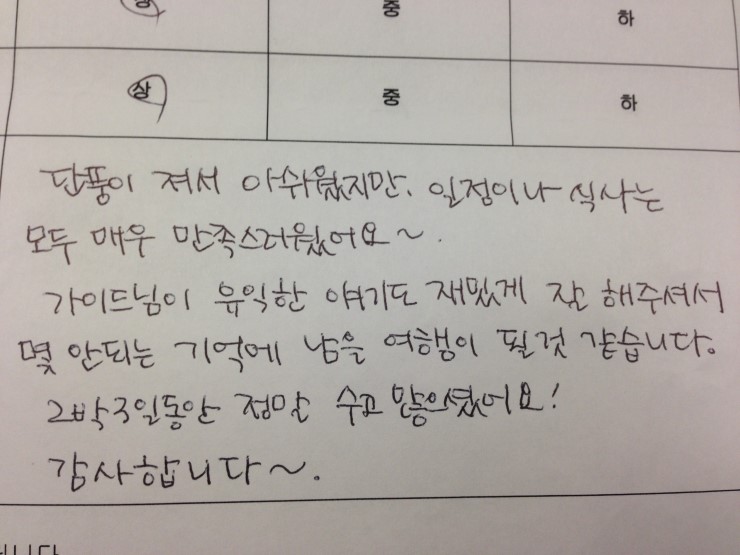 상 중 하
상 중 하
단풍이 져서 아쉬웠지만. 일정이나 식사는
모두 매우 만족스러웠어요~.
가이드님이 유익한 얘기도 재밌게 잘 해주셔서
몇 안되는 기억에 남을 여행이 될것 같습니다.
2박3일동안 정말 수고 많으셨어요!
감사합니다~.